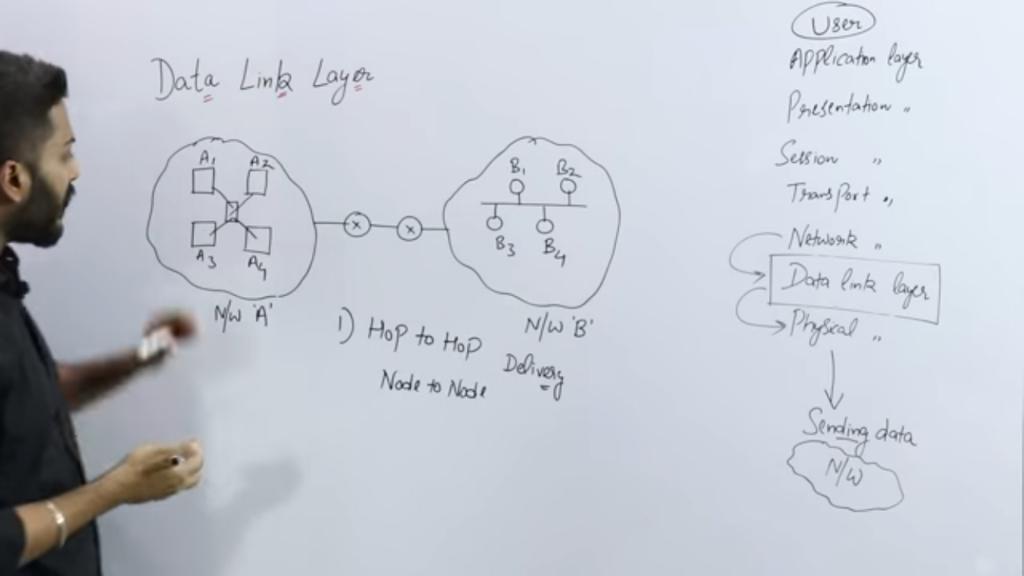 Data Link Layer
A1 A2
A3 A4
N/W 'A'
x x
B1 B2
B3 B4
N/W 'B'
1) Hop to Hop Delivery
Node to Node
User
Application layer
Presentation "
Session "
Transport "
Network "
Data link layer
Physical "
Sending data
N/W